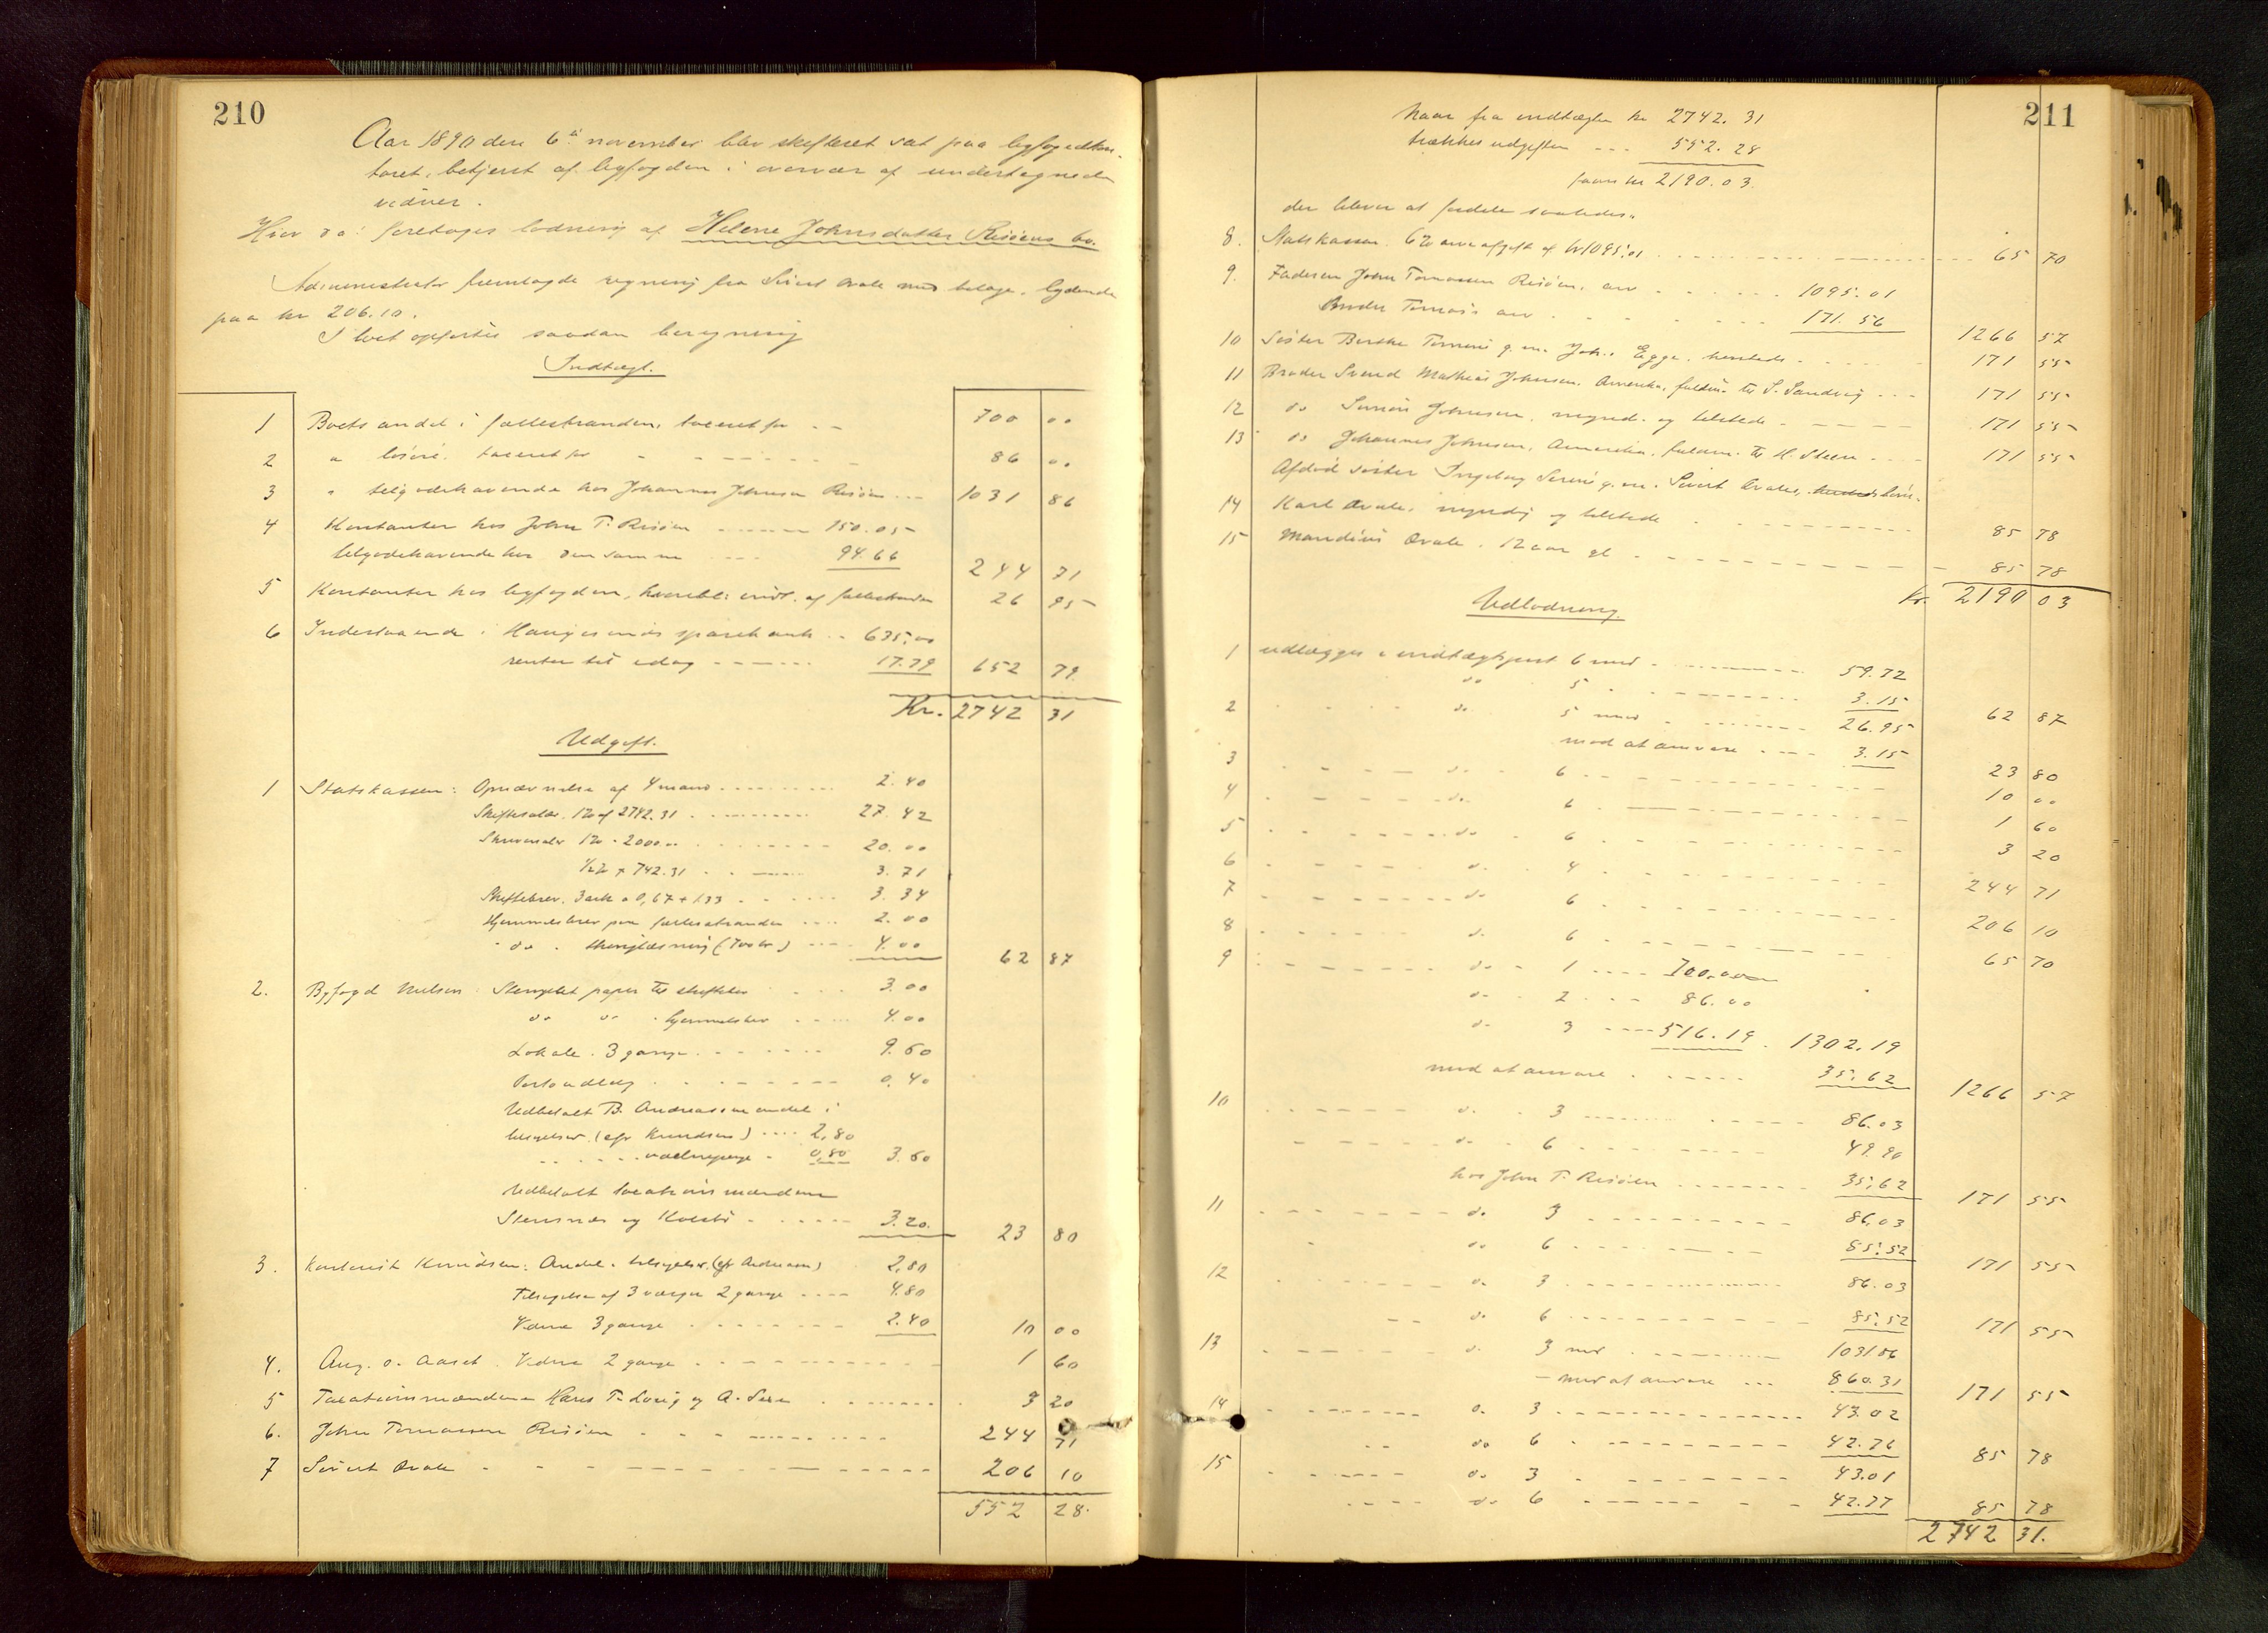 210
Aar 1890 den 6te november blev skifteret sat paa byfogedkon-
toret, betjent af byfogden i overvær af undertegnede
vidner.
Hvor da: foretoges lodning af Helene Johnsdatter Risöens bo.
Administrator fremlagde regning fra Sivert Qvale med bilage, lydende
paa kr 206.10.
I boet opførtes saadan beregning
Indtægt.
1 Boets andel i fællesstranden, taxeret for - - 700 00
2 " løsøre, taxeret for - - - 86 00
3 " tilgodehavende hos Johannes Johnsen Risöen - - 1031 86
4 Kontanter hos John T. Risöen - - - 150.05
tilgodehavende hos den samme - - - 94.66 244 71
5 Kontanter hos byfogden, hvoribl: indt. af fællesstranden 26 95
6 Indestaaende i Haugesunds sparebank - - 635.00
renter til idag - - - 17.79 652 79
Kr. 2742 31
Udgift.
1 Statskassen: Opnævnelse af 4 mænd - - - 2.40
Skiftesalær, 1% af 2742.31 - - - 27.42
Skriversalær 1% - 2000.00 - - - 20.00
1/2% - 742.31 - - - 3.71
Skiftebrev, 3 ark a 0,67 + 1.33 - - - 3.34
Hjemmelsbrev paa fællesstranden - - - 2.00
" do " thinglæsning (700 kr) - - - 4.00 62 87
2. Byfogd Nielsen: Stemplet papir til skiftebrev - - - 3.00
do do " hjemmelsbrev - - - 4.00
Lokale, 3 gange - - - 9.60
Portoudlæg - - - 0.40
Udbetalt B. Andreassen andel i
tilsigelser (efr Knudsen) - - - 2,80
- - - vidnepenge - 0,80 3.60
Udbetalt taxationsmændene
Stensnæs og Kolstö - - - 3.20 23 80
3. Kontorist Knudsen: Andel i tilsigelser (efr Andreassen) 2,80
Tilsigelse af 3 værger 2 gange - - - 4.80
Vidne 3 gange - - - 2.40 10 00
4. Aug. O. Aaset. Vidne 2 gange - - - 1 60
5 Taxationsmændene Hans T. Lovig og A. - - - 3 20
6. John Tomassen Risöen - - - 244 71
7 Sivert Qvale - - - 206 10
552 28.
211
Naar fra indtægten kr 2742.31
trækkes udgiften - - - 552.28
faaes kr 2190.03.
der bliver at fordele saaledes:
8. Statskassen. 6% arveafgift af kr 1095.01 - - - 65 70
9. Faderen John Tomassen Risöen, arv - - - 1095.01
- - - 171.56 1266 57
10 Söster Berthe Tomine g. m. Joh. Egge, hersteds - - - 171 55
11 Broder Svend Mathias Johnsen, Amerika, fuldm. til S. Sandvig - - - 171 55
12 do Johnsen, myndig og tilstede - - - 171 55
13 do Johannes Johnsen, Amerika, fuldm. til H. Steen - - - 171 55
Afdöd söster Ingeborg Serine g. m. Sivert Qvales, börn.
14 Karl Qvale, myndig og tilstede - - - 85 78
15 Mandius Qvale, 12 aar gl - - - 85 78
Kr. 2190 03
Udlodning.
1 udlægges i indtægtspost 6 med - - - 59.72
do 5 - - - 3.15 62 87
2 - - - do 5 med - - - 26.95
mod at ansvare - - - 3.15 23 80
3 - - - do - 6 - - - 10 00
4 - - - do 6 - - - 1 60
5 - - - do - 6 - - - 3 20
6 - - - do - 4 - - - 244 71
7 - - - do 6 - - - 206 10
8 - - - do 6 - - - 65 70
9 - - - do - 1 - - - 700.00
do - 2 - - - 86.00
do 3 - - - 516.19. 1302.19
mod at ansvare - - - 35.62 1266 57
10 - - - do - 3 - - - 86.03
- - - do - 6 - - - 49.90
hos John T. Risöen - - - 35.62 171 55
11 - - - do 3 - - - 86.03
do 6 - - - 85.52 171 55
12 - - - do 3 - - - 86.03
- - do 6 - - - 85.52 171 55
13 - - - do 3 med - - - 1031.86
- mod at ansvare - - - 860.31 171 55
14 - - - do 3 - - - 43.02
- - do 6 - - - 42.76 85 78
15 - - - do 3 - - - 43.01
- - - do 6 - - - 42.77 85 78
2742 31.